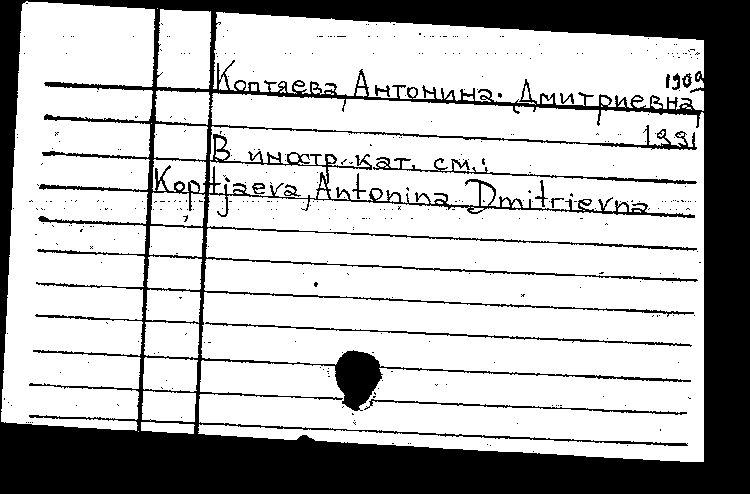 Коптяева, Антонина Дмитриевна, 1909
1991
В иностр. кат. см.:
Koptjaeva, Antonina Dmitrievna